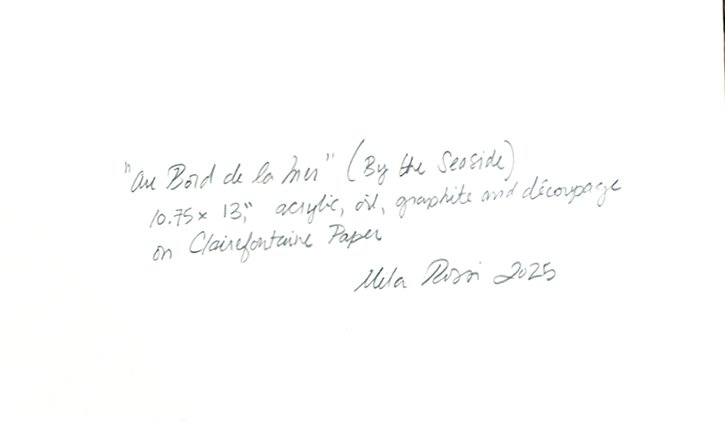 "Au Bord de la Mer" (By the Seaside)
10.75 x 13", acrylic, oil, graphite and découpage
on Clairefontaine Paper
Mela Rossi 2025